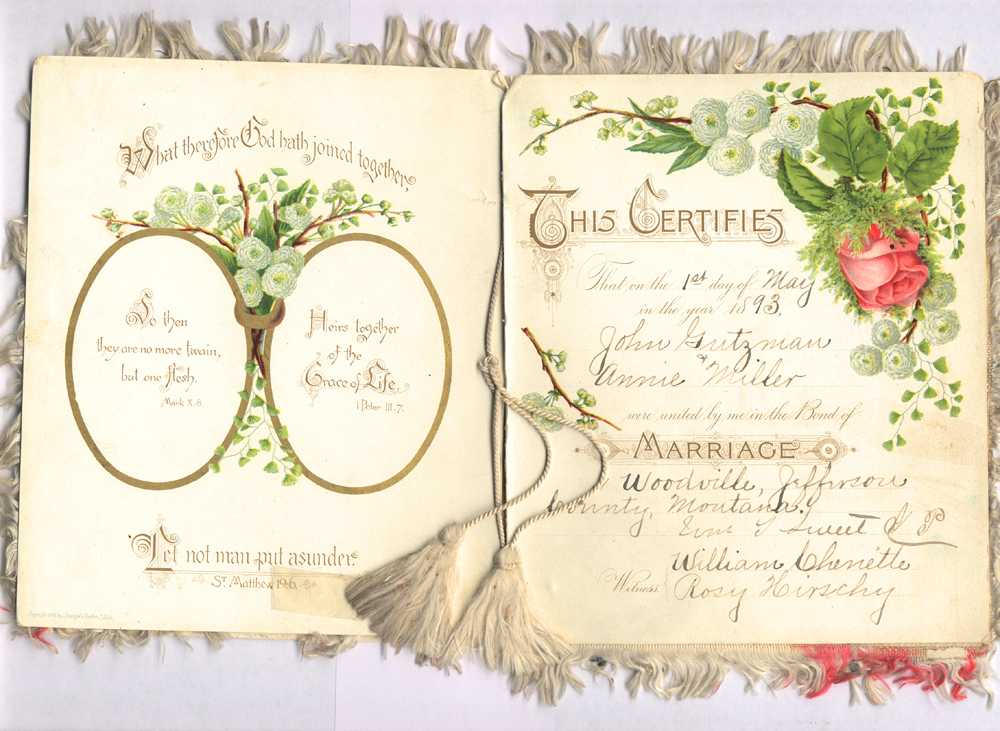 What therefore God hath joined together,
So then
they are no more twain,
but one flesh.
Mark X. 8.
Heirs together
of the
Grace of Life.
1 Peter III. 7.
Let not man put asunder.
St. Matthew 19.6.
THIS CERTIFIES
That on the 1st day of May
in the year 1893.
John Gutzman
Annie Miller
were united by me in the Bond of
MARRIAGE
Woodville, Jefferson
County, Montana.
Sweet J P
William Chenette
Witness Rosy Hirschy